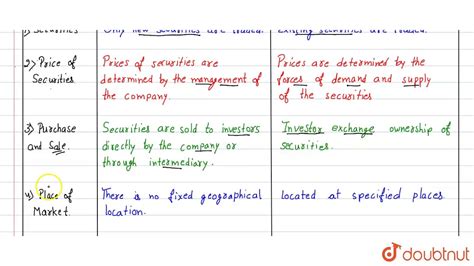 1) Securities Only new securities are traded. existing securities are traded.
2) Price of Prices of securities are Prices are determined by the
Securities. determined by the management of forces of demand and supply
the company. of the securities
3) Purchase Securities are sold to investors Investor exchange ownership of
and Sale. directly by the company or securities.
through intermediary.
4) Place of There is no fixed geographical located at specified places
Market. location.
doubtnut